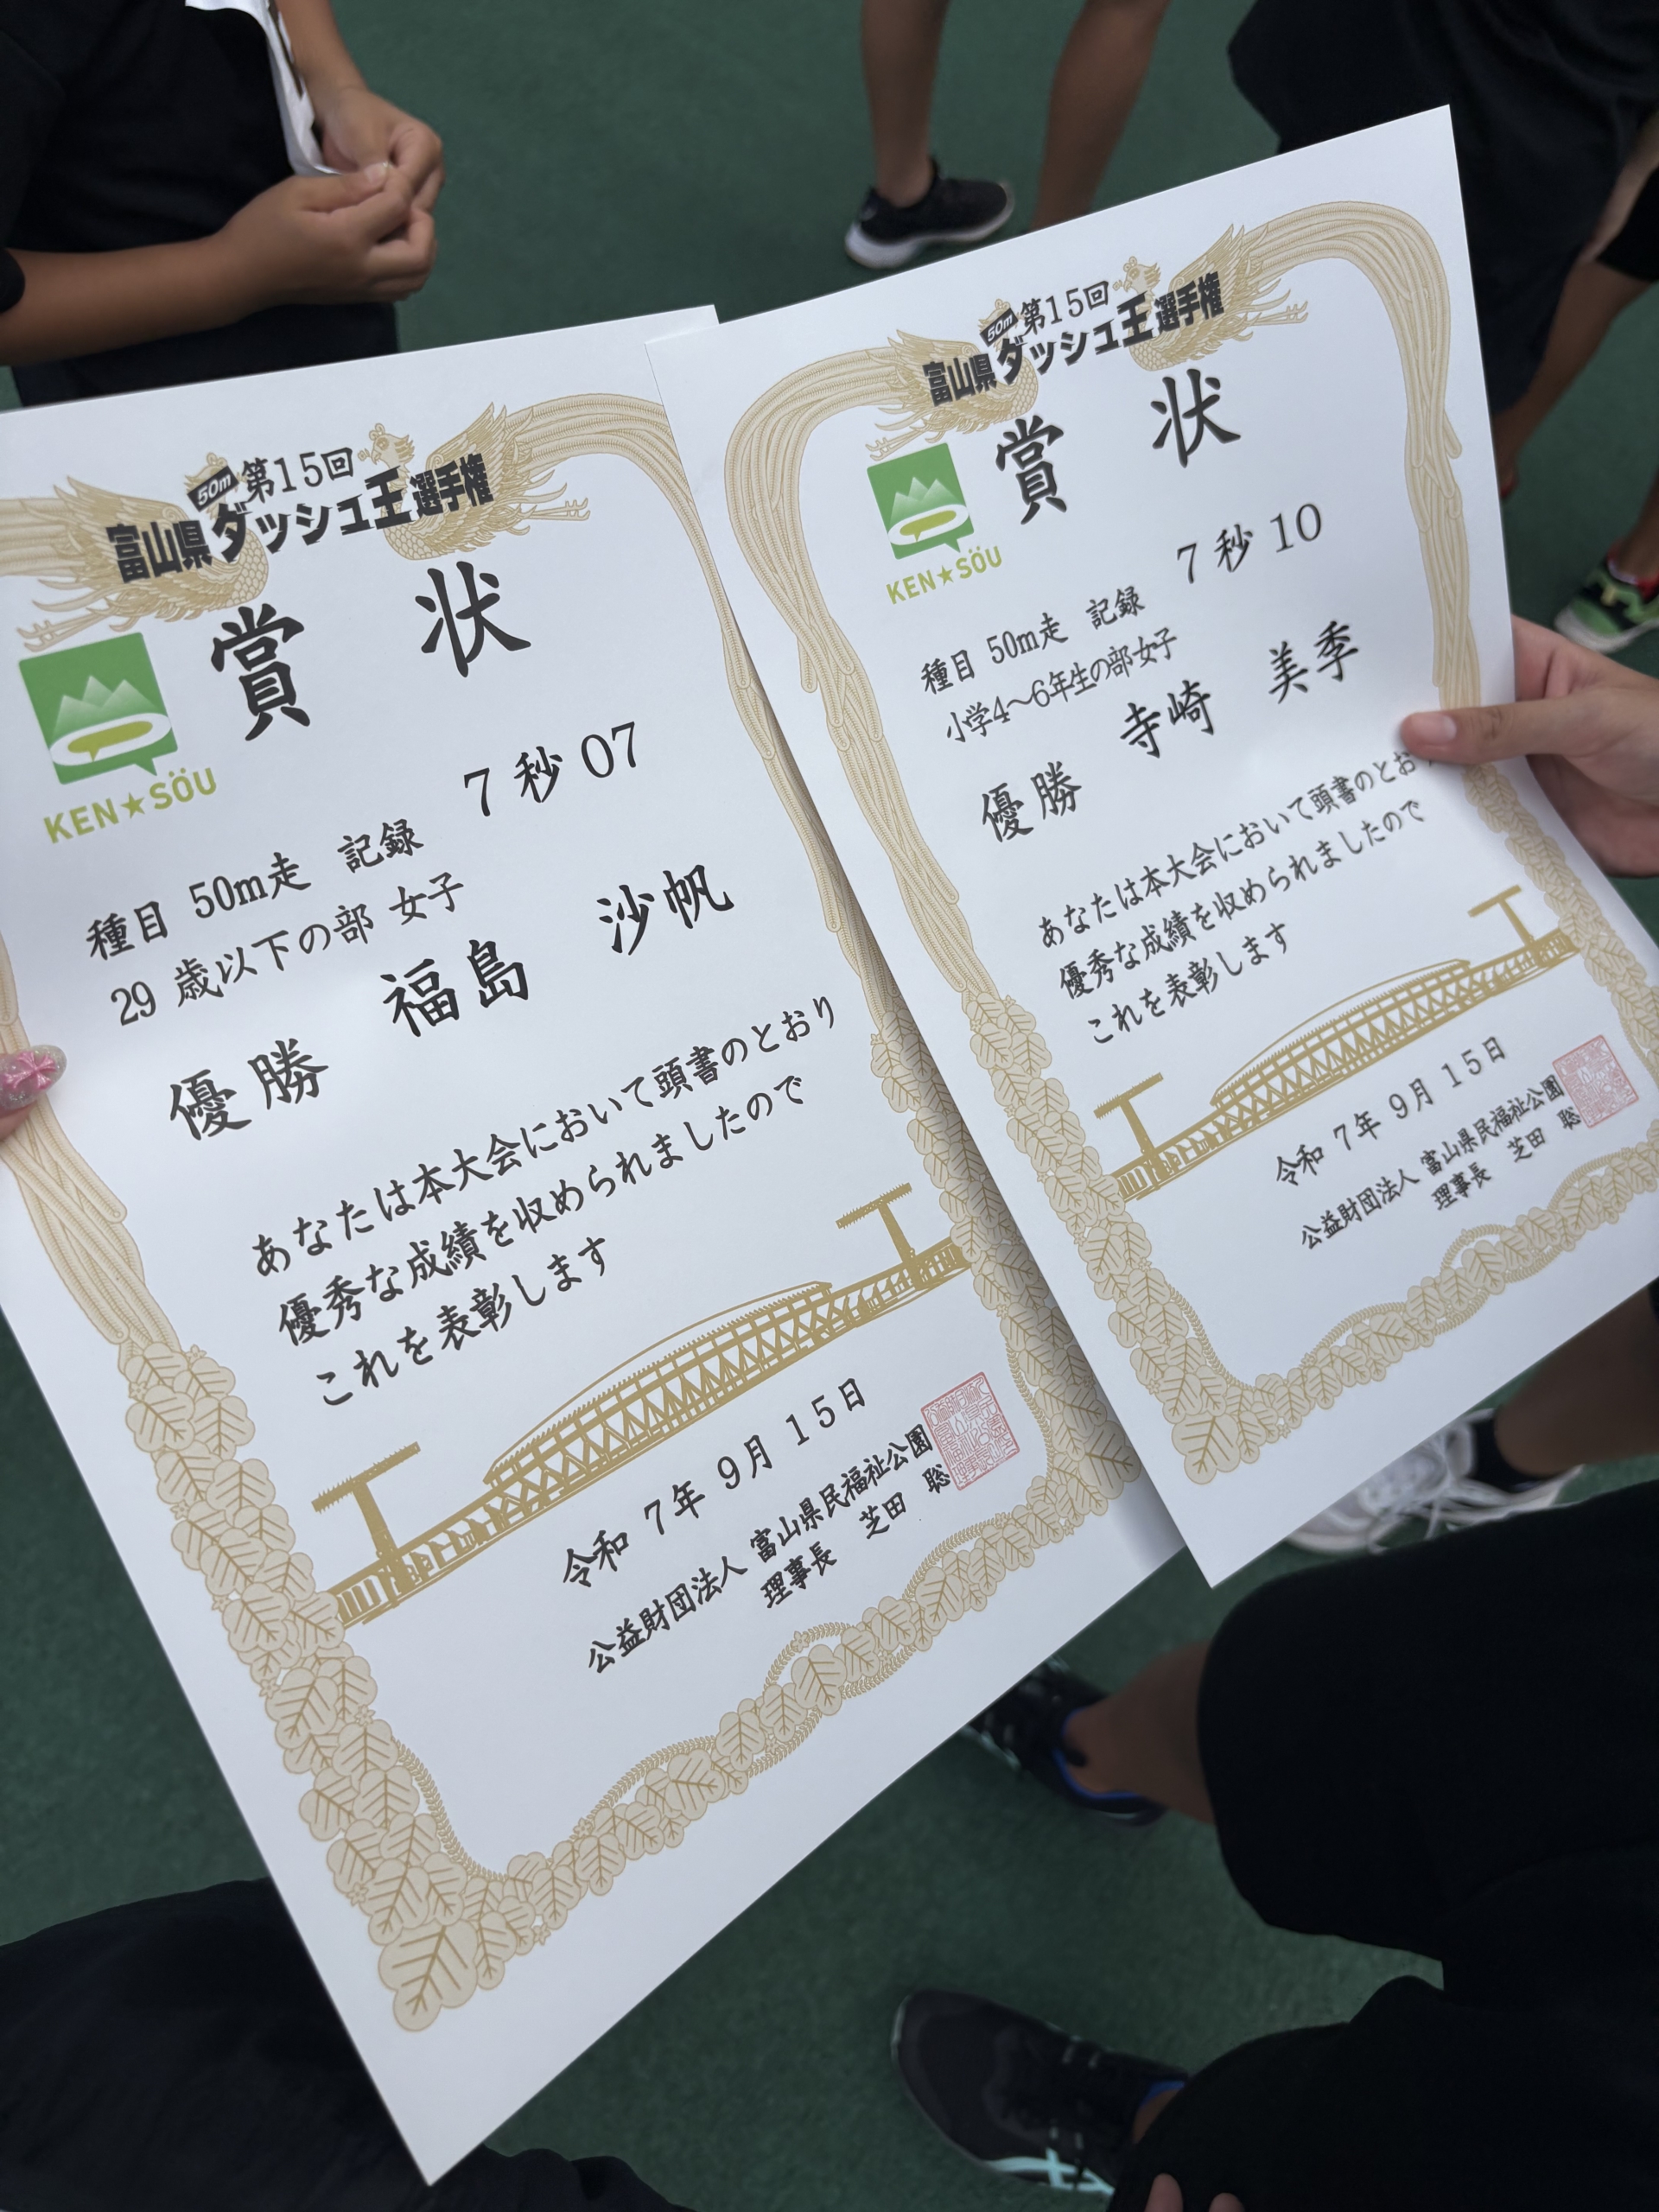 第15回
50m
富山県ダッシュ王選手権
賞状
KEN★SÖU
種目 50m走 記録 7秒07
29歳以下の部 女子
優勝 福島 沙帆
あなたは本大会において頭書のとおり
優秀な成績を収められましたので
これを表彰します
令和 7年 9月 15日
公益財団法人 富山県民福祉公園
理事長 芝田 聡
第15回
50m
富山県ダッシュ王選手権
賞状
KEN★SÖU
種目 50m走 記録 7秒10
小学4〜6年生の部 女子
優勝 寺崎 美季
あなたは本大会において頭書のとお
優秀な成績を収められましたので
これを表彰します
令和 7年 9月 15日
公益財団法人 富山県民福祉公園
理事長 芝田 聡